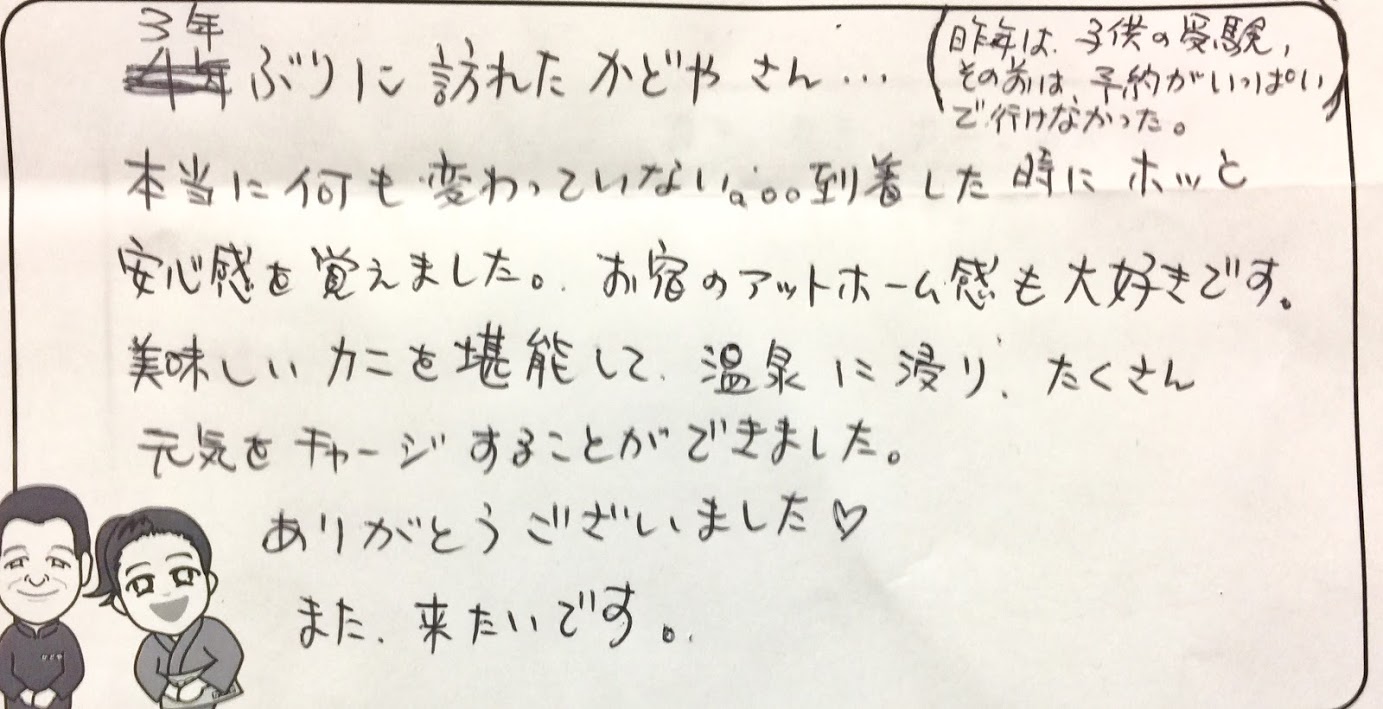 3年
4年ぶりに訪れたかどやさん…
(昨年は、子供の受験、
その前は、予約がいっぱい
で行けなかった。)
本当に何も変わっていない。。。到着した時にホッと
安心感を覚えました。お宿のアットホーム感も大好きです。
美味しいカニを堪能して、温泉に浸り、たくさん
元気をチャージすることができました。
ありがとうございました♡
また、来たいです。
かどや